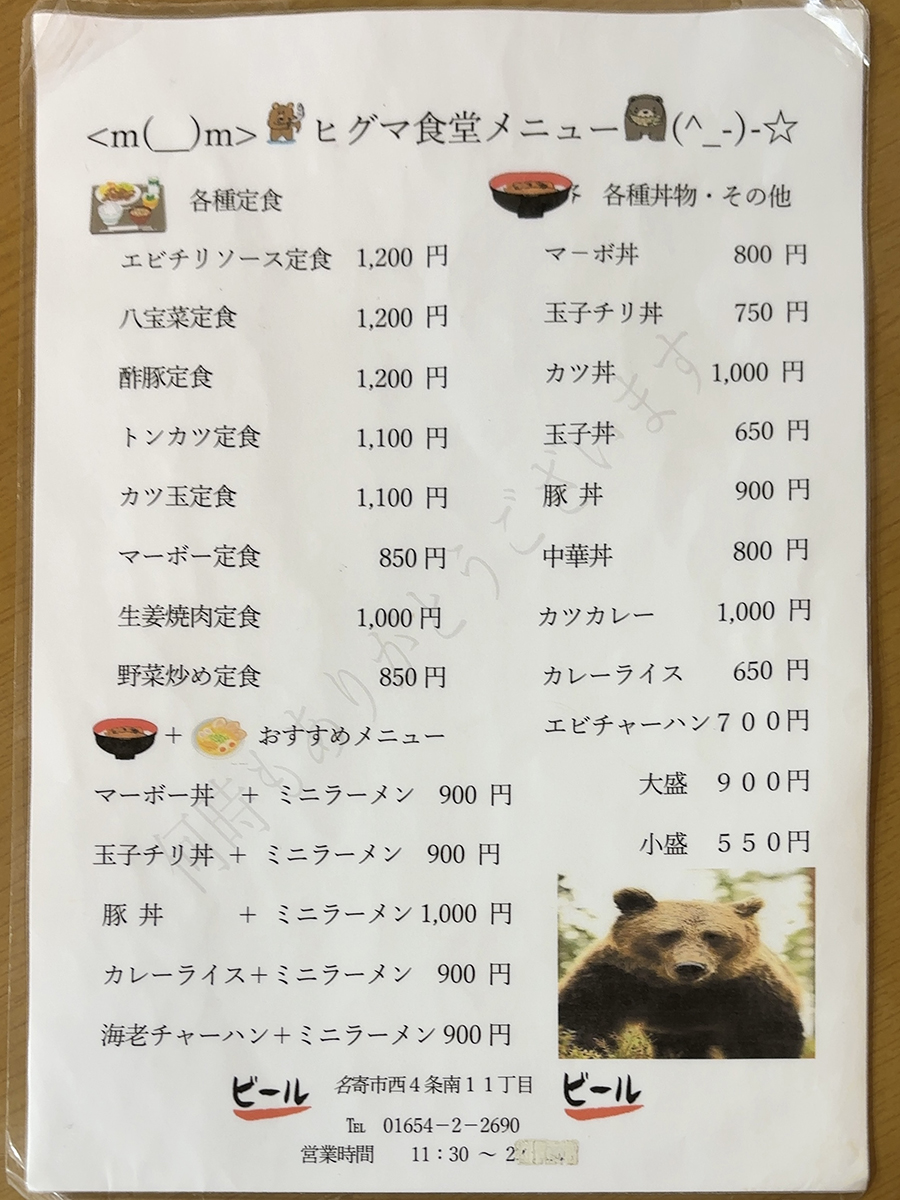 <m(__)m> ヒグマ食堂メニュー (^_-)-☆
各種定食
エビチリソース定食 1,200 円
八宝菜定食 1,200 円
酢豚定食 1,200 円
トンカツ定食 1,100 円
カツ玉定食 1,100 円
マーボー定食 850円
生姜焼肉定食 1,000円
野菜炒め定食 850円
+ おすすめメニュー
マーボー丼 + ミニラーメン 900 円
玉子チリ丼 + ミニラーメン 900 円
豚 丼 + ミニラーメン 1,000 円
カレーライス+ミニラーメン 900 円
海老チャーハン+ミニラーメン 900円
各種丼物・その他
マーボ丼 800 円
玉子チリ丼 750 円
カツ丼 1,000 円
玉子丼 650 円
豚 丼 900 円
中華丼 800 円
カツカレー 1,000 円
カレーライス 650 円
エビチャーハン 700円
大盛 900円
小盛 550円
何時もありがとうございます
ビール 名寄市西4条南11丁目 ビール
℡ 01654-2-2690
営業時間 11:30 ~ 2